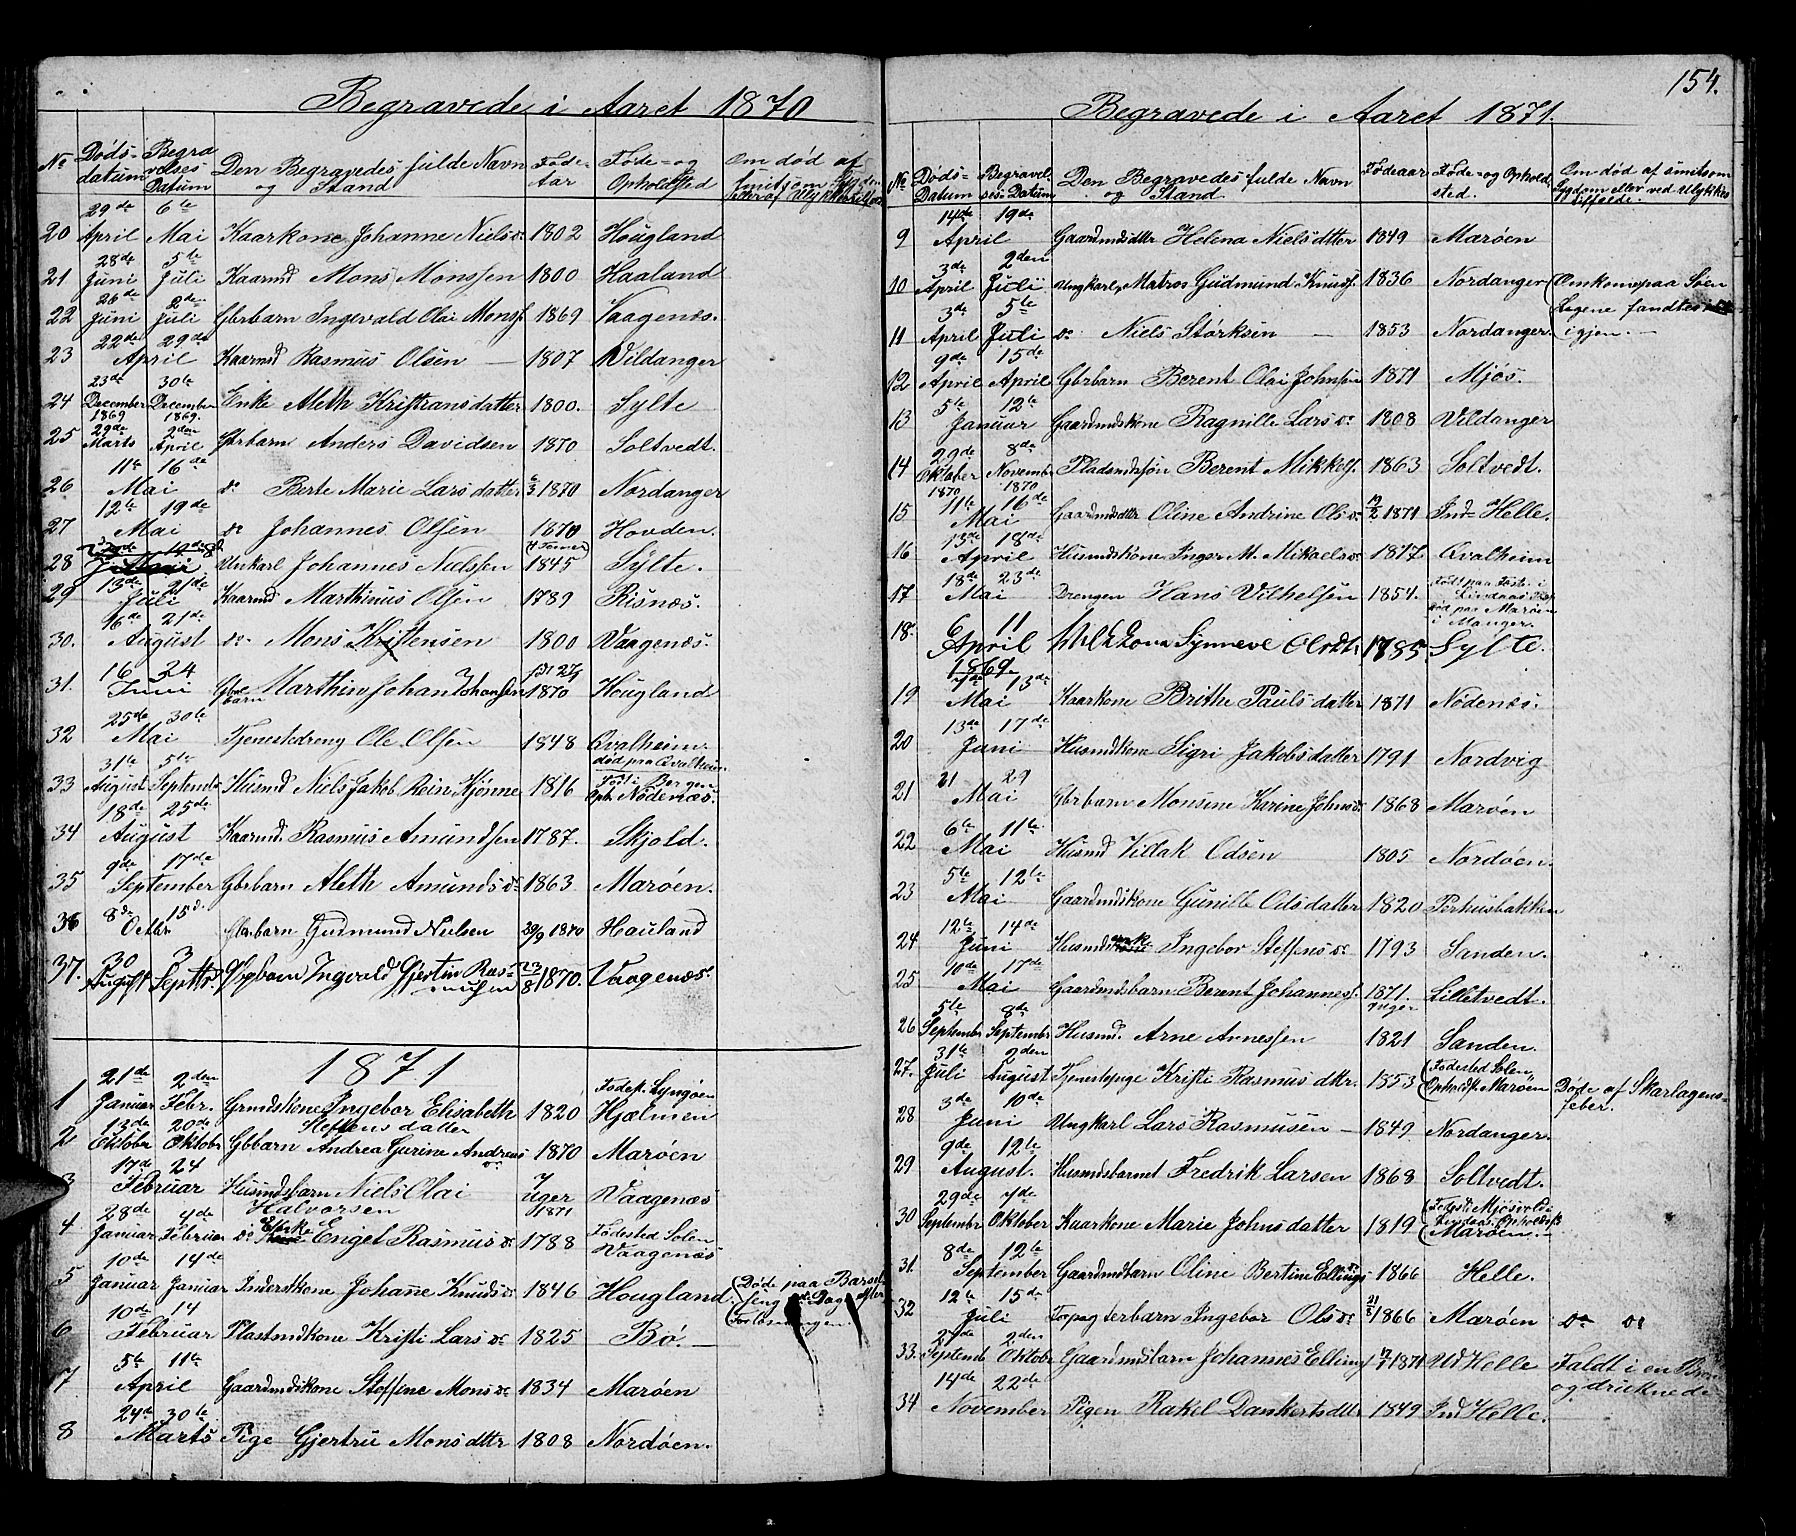 Begravede i Aaret 1870
No Døds-datum Begravelses Datum Den Begravedes fulde Navn og Stand Føde-Aar Føde- og Opholdsted Om død af
20 29de April 6te Mai Kaarkone Johanne Nielsdr 1802 Hougland
21 28de Juni 5te Juli Kaarmd Mons Monssen 1800 Haaland
22 26de Juni 2den Juli Gbrbarn Ingevald Olai Monss. 1869 Vaagenæs.
23 22de 29de April Kaarmd Rasmus Olsen 1807 Vildanger
24 23de December 1869 30te December 1869. Enke Aleth Kristiansdatter 1800. Sylte
25 29de Marts 2den April Gbrbarn Anders Davidsen 1870 Soltvedt.
26 11te 16de Mai do Berte Marie Larsdatter 6/3 1870 Nordanger
27 12te 19de Mai do Johannes Olsen 1870 Hovden.
28 Unkarl Johannes Nielssen 1845 Sylte.
29 13de 21de Juli Kaarmd Marthinus Olsen 1789 Risnæs.
30. 16de 21de August do Mons Kristensen 1800 Vaagenæs.
31. 16 24 Juni Gbrbarn Marthin Johan Johansen 1870 Hougland
32 25de 30te Mai Tjenestedreng Ole Olsen 1848 Qvalheim. død paa Qvalheim
33 31te August 5te Septemb Husmd Niels Jakob Rein Hjønne 1816 Fød i Bergen Oph. Nødenæs.
34 18de 25de August Kaarmd. Rasmus Amundsen 1787. Skjold.
35 9de 17de September Gbrbarn Aleth Amundsdr 1863 Marøen.
36 8de 15d. Octbr Gbrbarn Gudmund Nielsen 29/9 1870 Hauland
37. 30 August 3 Septbr. Gbrbarn Ingvald Gjertin Rasmusen 23/8 1870. Vaagenæs.
1871
1 21de Januar 2den Febr. Grmdskone Ingebor Elisabeth Steffensdatter 1820 Fødest. Lyngøen Hjelmen
2 13de Oktobr 20de Oktobr Gbrbarn Andrea Gurine Andreasdr 1870 Marøen
3 17de 24 Februar Husmdsbarn Niels Olai Halvorsen 7 Uger 1871 Vaagenæs
4 28de Januar 4de Februar do Enke Engel Rasmusdr 1788 Fødested Solen Vaagenæs
5 10de Januar 14de Januar Inderskone Johanne Knudsdr 1846 Hougland. (Døde paa Barsel-seng Dag efter Forløsningen.
6 10de 14 Februar Plasmdkone Kristi Larsdr 1825 Bø.
7 5te 11te April Gaardmdskone Steffine Monsdr 1834 Marøen
8 24de 30te Marts Pige Gjertru Monsdtr 1808 Nordøen.
154.
Begravede i Aaret 1871.
No Døds-Datum Begravel-ses-Datum Den Begravedes fulde Navn og Stand Fødeaar Føde- og Opholdsted. Om død af smitsom Sygdom eller ved Ulykkestilfælde.
9 14de 19de April Gaardmdsdttr Helena Nielsdtter 1849 Marøen
10 3de April 2den Juli Ungkarl, Matros Gudmund Knuds. 1836 Nordanger (Omkomne paa Søen
11 3de April 5te Juli do Niels Størksen 1853 Nordanger. Ligene fandtes igjen.
12 9de April 15de April Gbrbarn Berent Olai Johnsen 1871 Mjøs.
13 5te 12te Januar Gaardmdskone Ragnille Larsdr 1808 Vildanger
14 29de Oktober 1870 8de Novembr 1870 Pladsmdssøn Berent Mikkels. 1863 Soltvedt.
15 11te 16de Mai Gaardmdsdttr Oline Andrine Olsdr 12/2 1871 Ind-Helle.
16 13de 18de April Husmdskone Inger M. Mikaelsdr 1817 Qvalheim
17 18de 23de Mai Drengen Hans Vilhelsen 1854. Født paa Fosse i Lindaas død paa Marøen i Manger.
18. 6 11 April 1869 Synneve Olsdtr. 1785 Sylte.
19 7de 13de Mai Kaarkone Brithe Paulsdatter 1871 Nødenæs.
20 13de 17de Juni Husmdkone Sigri Jakobsdatter 1791 Nordvig
21 21 29 Mai Gbrbarn Monsine Karine Johnsdr 1868 Marøen
22 6te 11te Mai Husmd Villak Odsen 1805 Nordøen.
23 5te 12te Mai Gaardmdskone Gunille Odsdatter 1820 Perhusbakken
24 12te 14de Juni Husmdsenke Ingebor Steffensdr 1793 Sanden.
25 10de 17de Mai Gaardmdsbarn Berent Johannes. 1871. Lilletvedt.
26 5te Septembr 8de Septembr Husmd. Arne Arnessen 1821 Sanden.
27. 31te Juli 2den August Tjenestepige Kristi Rasmusdtr. 1853 (Fødested Solen, Opholdst. Marøen Døde af Skarlagensfeber.
28 3de 10de Juni Ungkarl Lars Rasmusen 1849 Nordanger.
29 9de 12te August. Husmdsbarnet Fredrik Larsen 1868 Soltvedt.
30 29de Septembr 7de Oktober Kaarkone Marie Johnsdatter 1819 (Fødest. Mjøsvold Lindaas. Opholdsst. Marøen.
31. 8de 12te September Gaardmdbarn Oline Bertine Ellingsdr 1866 Helle.
32 12te 15de Juli Forpagterbarn Ingebor Olsdr 21/8 1866 Marøen do do
33. 27de Septemb 2den Oktobr Gaardmdsbarn Johannes Ellings. 1871 Ud Helle Faldt i en Brønd og druknede
34 14de 22de November Pigen Rakel Dankertsdttr 1849 Ind Helle.